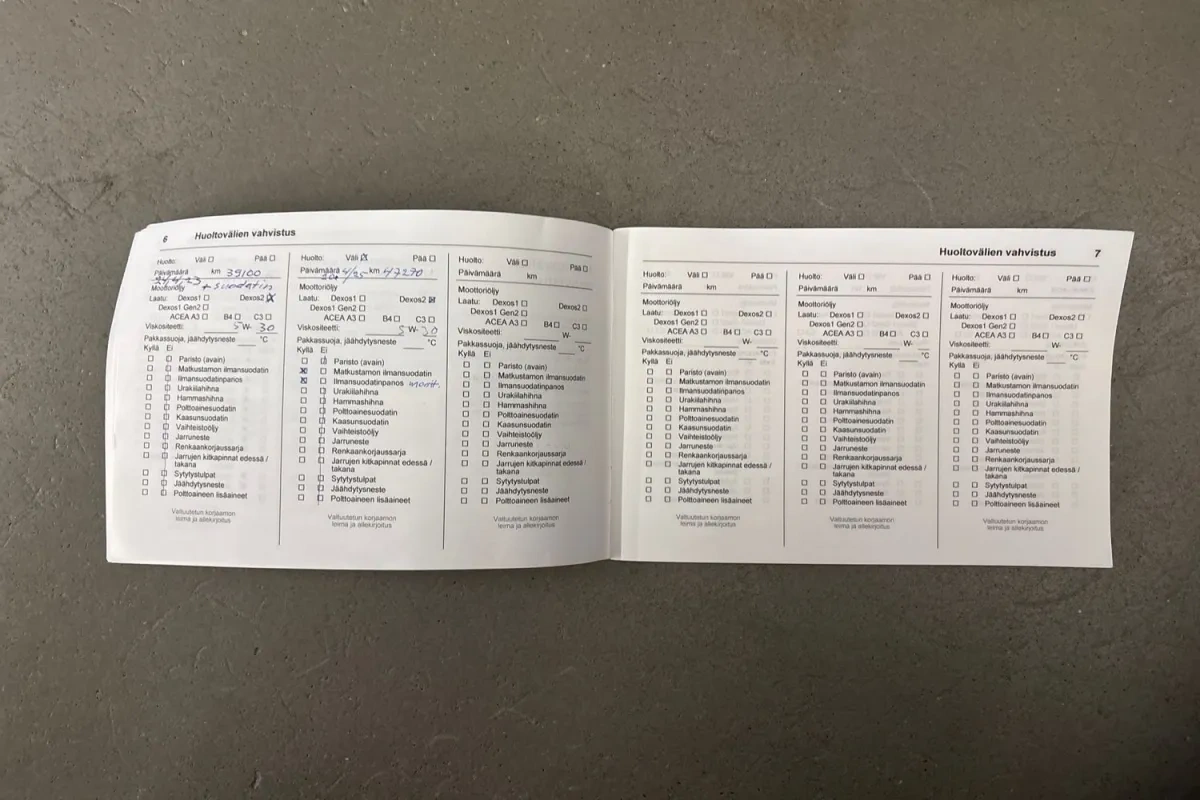 6 Huoltovälien vahvistus
Huolto: Väli ☐ Pää ☐
Päivämäärä km 39100
24/4/23 + suodatin
Moottoriöljy
Laatu: Dexos1 ☐ Dexos2 ☒
Dexos1 Gen2 ☐
ACEA A3 ☐ B4 ☐ C3 ☐
Viskositeetti: 5 W- 30
Pakkassuoja, jäähdytysneste °C
Kyllä Ei
☐ ☐ Paristo (avain)
☐ ☐ Matkustamon ilmansuodatin
☐ ☐ Ilmansuodatinpanos
☐ ☐ Urakiilahihna
☐ ☐ Hammashihna
☐ ☐ Polttoainesuodatin
☐ ☐ Kaasunsuodatin
☐ ☐ Vaihteistoöljy
☐ ☐ Jarruneste
☐ ☐ Renkaankorjaussarja
☐ ☐ Jarrujen kitkapinnat edessä /
takana
☐ ☐ Sytytystulpat
☐ ☐ Jäähdytysneste
☐ ☐ Polttoaineen lisäaineet
Valtuutetun korjaamon
leima ja allekirjoitus
Huolto: Väli ☒ Pää ☐
Päivämäärä 4/25 km 47270
Moottoriöljy
Laatu: Dexos1 ☐ Dexos2 ☒
Dexos1 Gen2 ☐
ACEA A3 ☐ B4 ☐ C3 ☐
Viskositeetti: 5 W- 30
Pakkassuoja, jäähdytysneste °C
Kyllä Ei
☐ ☐ Paristo (avain)
☒ ☐ Matkustamon ilmansuodatin
☒ ☐ Ilmansuodatinpanos moott.
☐ ☐ Urakiilahihna
☐ ☐ Hammashihna
☐ ☐ Polttoainesuodatin
☐ ☐ Kaasunsuodatin
☐ ☐ Vaihteistoöljy
☐ ☐ Jarruneste
☐ ☐ Renkaankorjaussarja
☐ ☐ Jarrujen kitkapinnat edessä /
takana
☐ ☐ Sytytystulpat
☐ ☐ Jäähdytysneste
☐ ☐ Polttoaineen lisäaineet
Valtuutetun korjaamon
leima ja allekirjoitus
Huolto: Väli ☐ Pää ☐
Päivämäärä km
Moottoriöljy
Laatu: Dexos1 ☐ Dexos2 ☐
Dexos1 Gen2 ☐
ACEA A3 ☐ B4 ☐ C3 ☐
Viskositeetti: W-
Pakkassuoja, jäähdytysneste °C
Kyllä Ei
☐ ☐ Paristo (avain)
☐ ☐ Matkustamon ilmansuodatin
☐ ☐ Ilmansuodatinpanos
☐ ☐ Urakiilahihna
☐ ☐ Hammashihna
☐ ☐ Polttoainesuodatin
☐ ☐ Kaasunsuodatin
☐ ☐ Vaihteistoöljy
☐ ☐ Jarruneste
☐ ☐ Renkaankorjaussarja
☐ ☐ Jarrujen kitkapinnat edessä /
takana
☐ ☐ Sytytystulpat
☐ ☐ Jäähdytysneste
☐ ☐ Polttoaineen lisäaineet
Valtuutetun korjaamon
leima ja allekirjoitus
Huoltovälien vahvistus 7
Huolto: Väli ☐ Pää ☐
Päivämäärä km
Moottoriöljy
Laatu: Dexos1 ☐ Dexos2 ☐
Dexos1 Gen2 ☐
ACEA A3 ☐ B4 ☐ C3 ☐
Viskositeetti: W-
Pakkassuoja, jäähdytysneste °C
Kyllä Ei
☐ ☐ Paristo (avain)
☐ ☐ Matkustamon ilmansuodatin
☐ ☐ Ilmansuodatinpanos
☐ ☐ Urakiilahihna
☐ ☐ Hammashihna
☐ ☐ Polttoainesuodatin
☐ ☐ Kaasunsuodatin
☐ ☐ Vaihteistoöljy
☐ ☐ Jarruneste
☐ ☐ Renkaankorjaussarja
☐ ☐ Jarrujen kitkapinnat edessä /
takana
☐ ☐ Sytytystulpat
☐ ☐ Jäähdytysneste
☐ ☐ Polttoaineen lisäaineet
Valtuutetun korjaamon
leima ja allekirjoitus
Huolto: Väli ☐ Pää ☐
Päivämäärä km
Moottoriöljy
Laatu: Dexos1 ☐ Dexos2 ☐
Dexos1 Gen2 ☐
ACEA A3 ☐ B4 ☐ C3 ☐
Viskositeetti: W-
Pakkassuoja, jäähdytysneste °C
Kyllä Ei
☐ ☐ Paristo (avain)
☐ ☐ Matkustamon ilmansuodatin
☐ ☐ Ilmansuodatinpanos
☐ ☐ Urakiilahihna
☐ ☐ Hammashihna
☐ ☐ Polttoainesuodatin
☐ ☐ Kaasunsuodatin
☐ ☐ Vaihteistoöljy
☐ ☐ Jarruneste
☐ ☐ Renkaankorjaussarja
☐ ☐ Jarrujen kitkapinnat edessä /
takana
☐ ☐ Sytytystulpat
☐ ☐ Jäähdytysneste
☐ ☐ Polttoaineen lisäaineet
Valtuutetun korjaamon
leima ja allekirjoitus
Huolto: Väli ☐ Pää ☐
Päivämäärä km
Moottoriöljy
Laatu: Dexos1 ☐ Dexos2 ☐
Dexos1 Gen2 ☐
ACEA A3 ☐ B4 ☐ C3 ☐
Viskositeetti: W-
Pakkassuoja, jäähdytysneste °C
Kyllä Ei
☐ ☐ Paristo (avain)
☐ ☐ Matkustamon ilmansuodatin
☐ ☐ Ilmansuodatinpanos
☐ ☐ Urakiilahihna
☐ ☐ Hammashihna
☐ ☐ Polttoainesuodatin
☐ ☐ Kaasunsuodatin
☐ ☐ Vaihteistoöljy
☐ ☐ Jarruneste
☐ ☐ Renkaankorjaussarja
☐ ☐ Jarrujen kitkapinnat edessä /
takana
☐ ☐ Sytytystulpat
☐ ☐ Jäähdytysneste
☐ ☐ Polttoaineen lisäaineet
Valtuutetun korjaamon
leima ja allekirjoitus